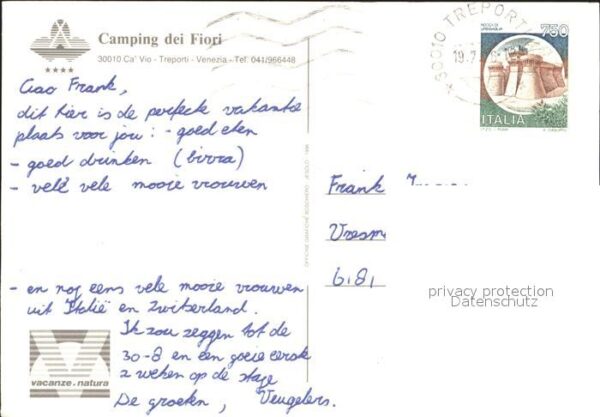 Camping dei Fiori
30010 Ca' Vio - Treporti - Venezia - Tel. 041/966448
30010 TREPORTI
19.7
ROCCA DI URBISAGLIA
750
ITALIA
Ciao Frank,
dit hier is de perfecte vakantie
plaats voor jou: - goed eten
- goed drinken (birra)
- vele vele mooie vrouwen
- en nog eens vele mooie vrouwen
uit Italië en Zwitserland.
Ik zou zeggen tot de
30-8 en een goeie eerste
2 weken op de stage
De groeten, Veugelers.
Frank
6181
privacy protection
Datenschutz
vacanze.natura